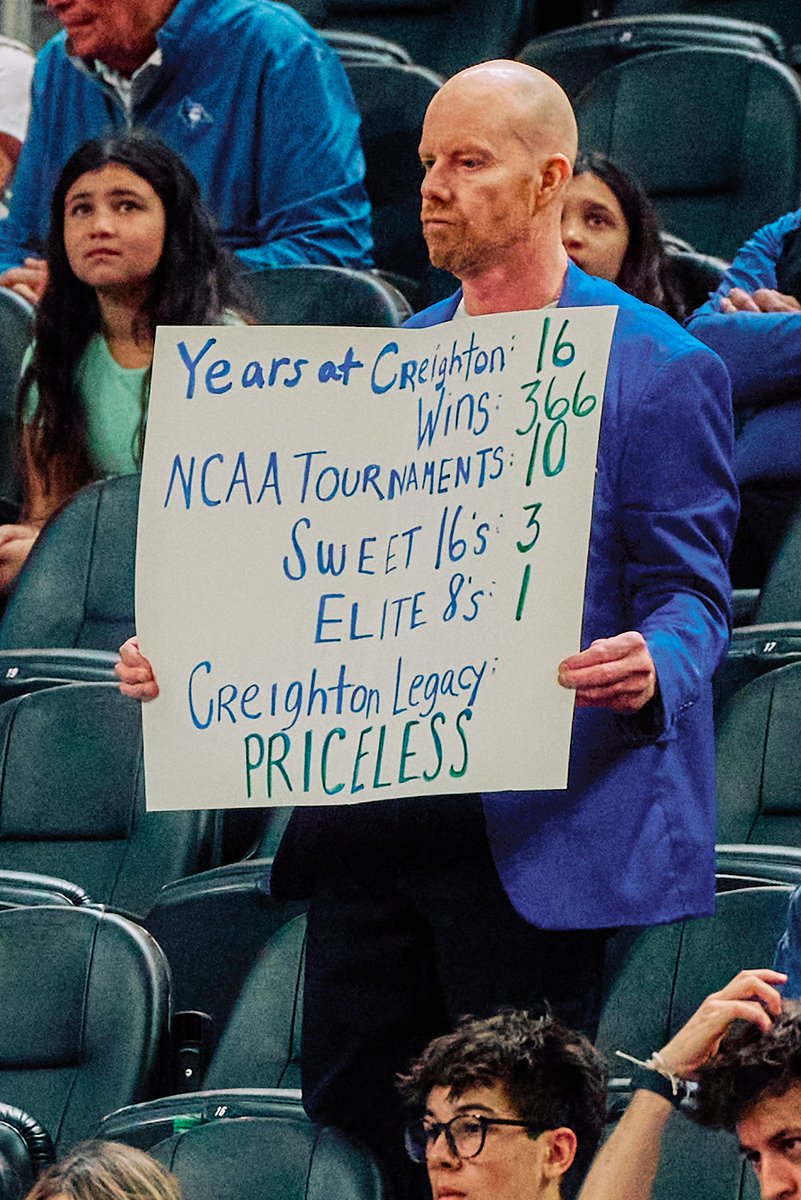 Years at Creighton: 16
Wins: 366
NCAA TOURNAMENTS: 10
SWEET 16's: 3
ELITE 8's: 1
Creighton Legacy:
PRICELESS
19
17
16